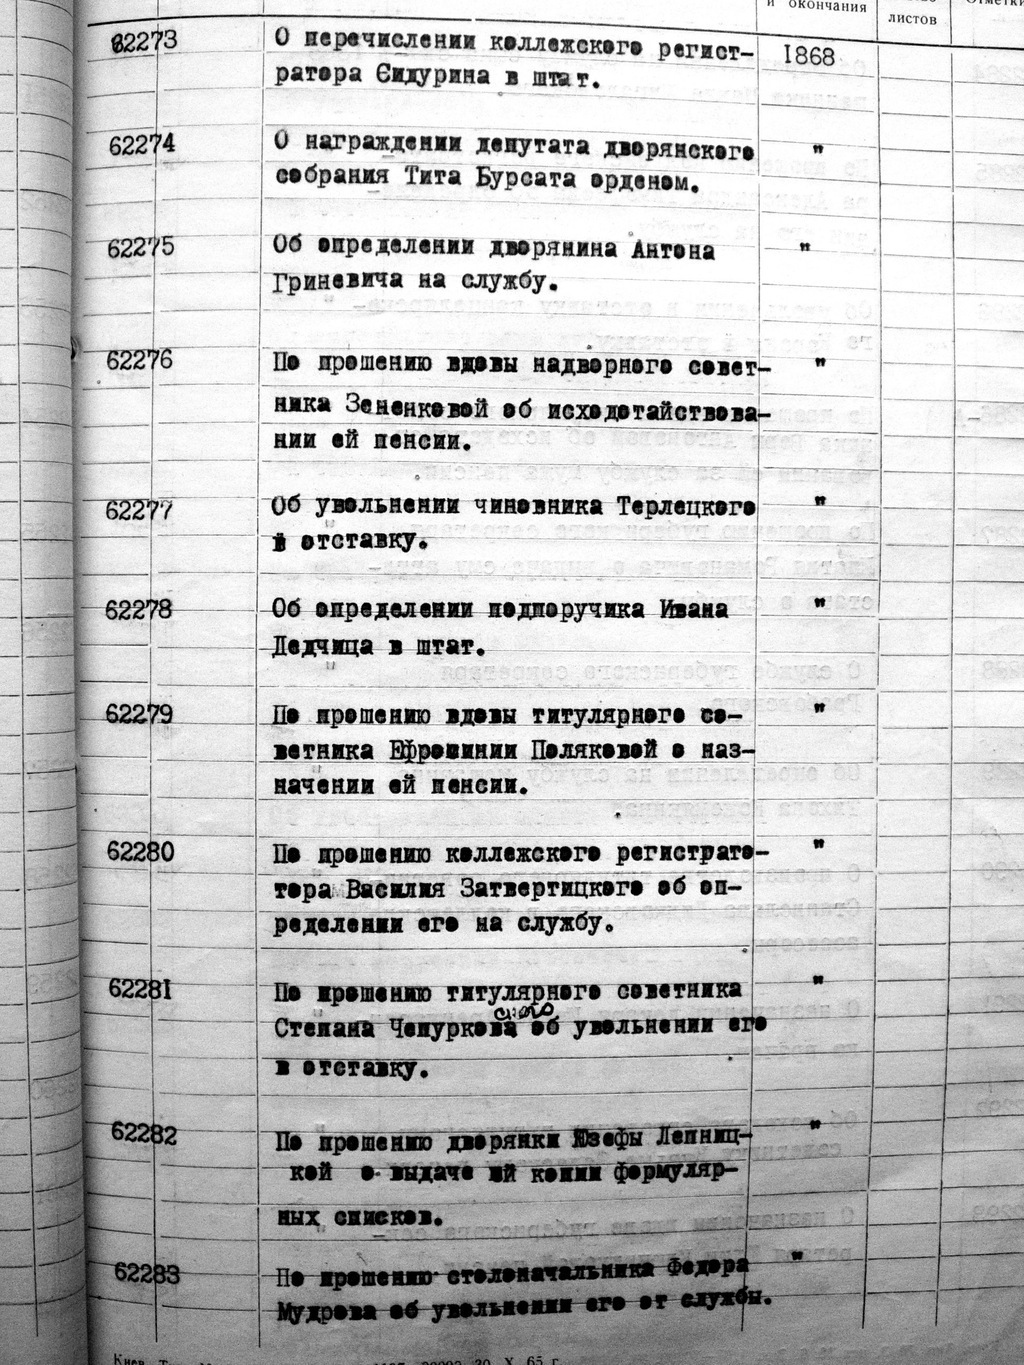 и окончания
листов
62273 О перечислении коллежского регист- 1868
ратора Сидурина в штат.
62274 О награждении депутата дворянского "
собрания Тита Бурсата орденом.
62275 Об определении дворянина Антона "
Гриневича на службу.
62276 По прошению вдовы надворного совет- "
ника Зененковой об исходотайствова-
нии ей пенсии.
62277 Об увольнении чиновника Терлецкого "
в отставку.
62278 Об определении подпоручика Ивана "
Дедчица в штат.
62279 По прошению вдовы титулярного со- "
ветника Ефросинии Поляковой о наз-
начении ей пенсии.
62280 По прошению коллежского регистрато- "
тора Василия Затвертицкого об оп-
ределении его на службу.
62281 По прошению титулярного советника "
Степана Чепуркова об увольнении его
в отставку.
62282 По прошению дворянки Юзефы Лепниц- "
кой о выдаче ей копии формуляр-
ных списков.
62283 По прошению столоначальника Федора "
Мудрова об увольнении его от службы.